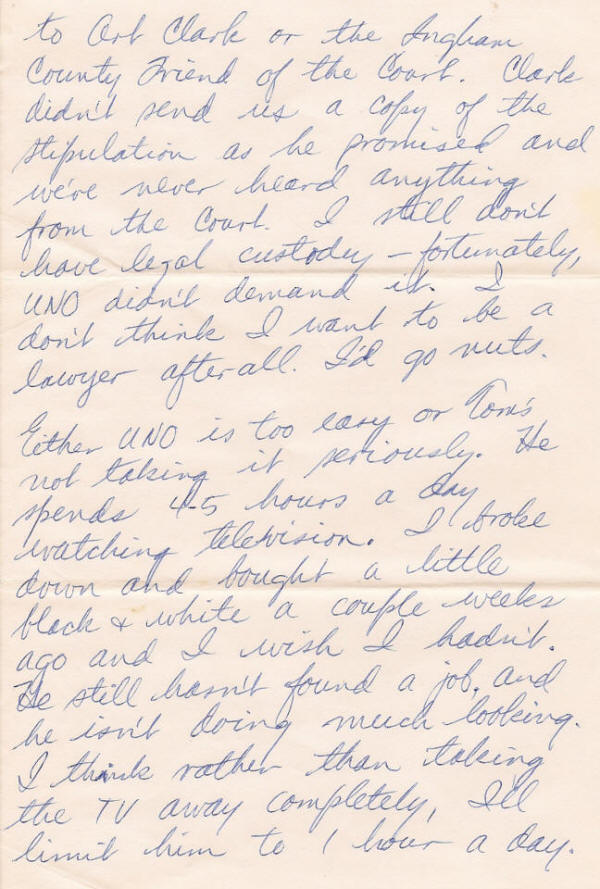 to Art Clark or the Ingham
County Friend of the Court. Clark
didn't send us a copy of the
stipulation as he promised and
we've never heard anything
from the Court. I still don't
have legal custody – fortunately,
UNO didn't demand it. I
don't think I want to be a
lawyer after all. I'd go nuts.
Either UNO is too easy or Tom's
not taking it seriously. He
spends 4-5 hours a day
watching television. I broke
down and bought a little
black & white a couple weeks
ago and I wish I hadn't.
He still hasn't found a job, and
he isn't doing much looking.
I think rather than taking
the TV away completely, I'll
limit him to 1 hour a day.